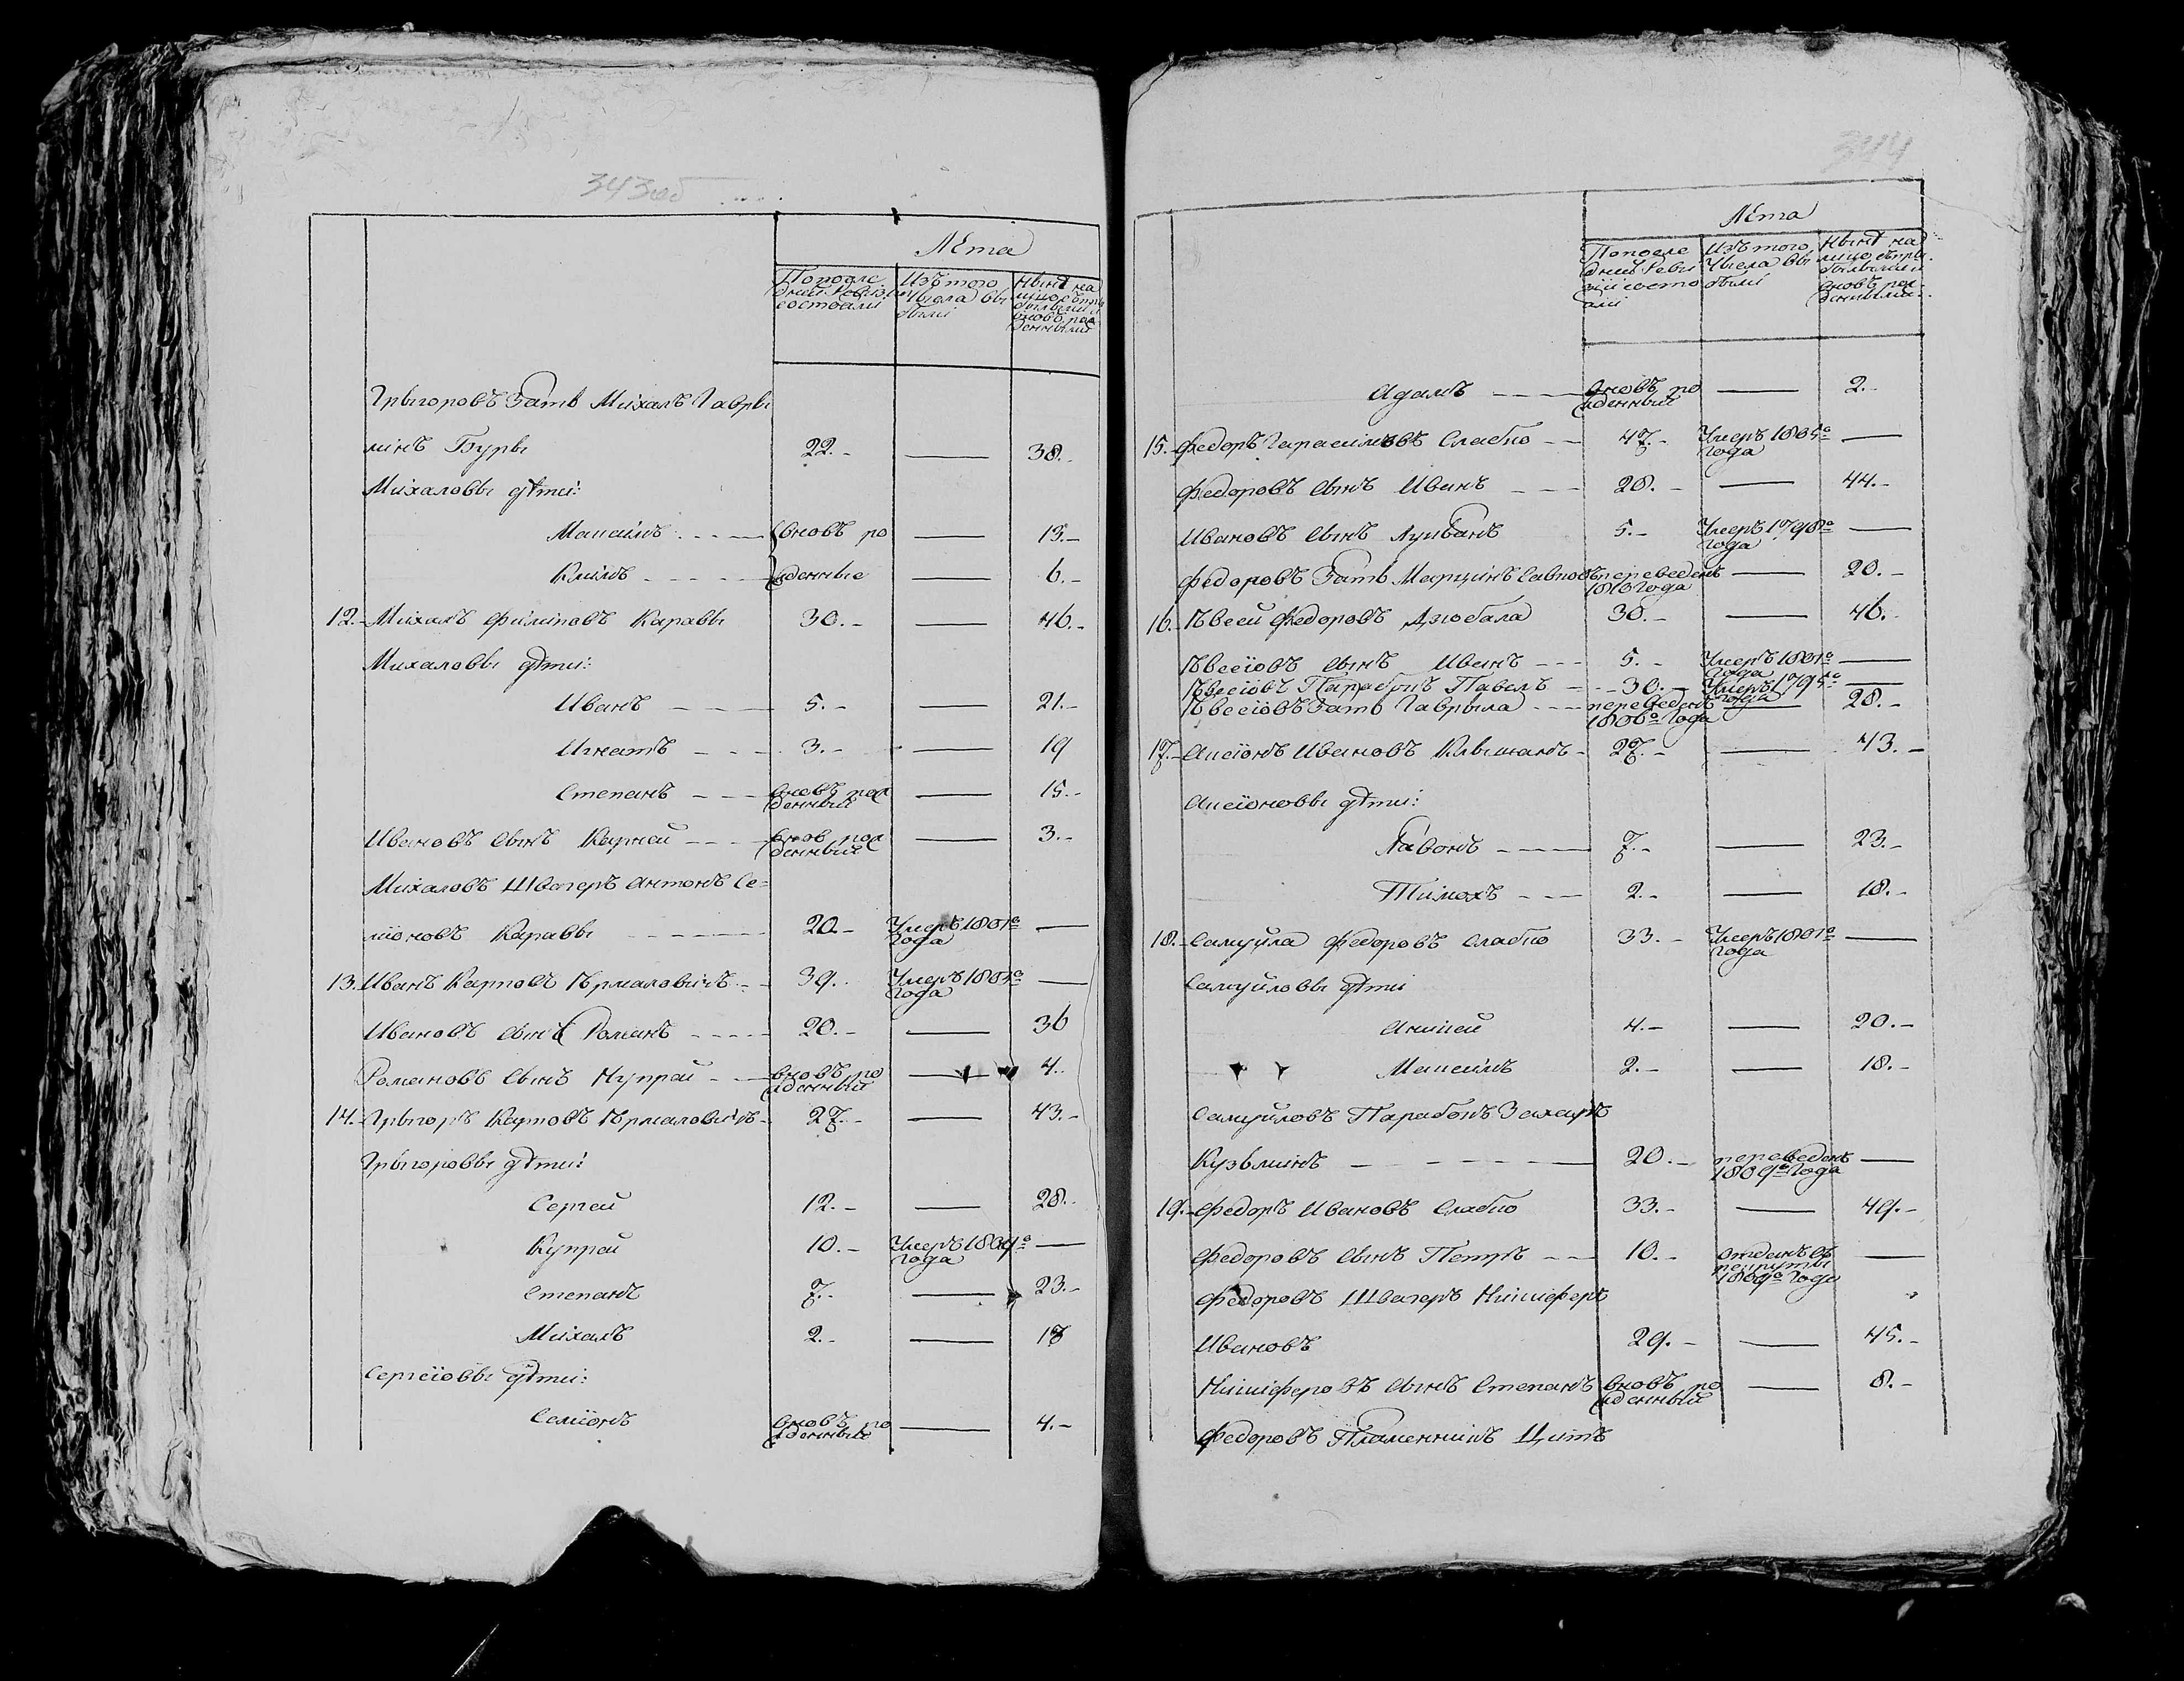 343 об
Лѣта
По после
дней Ревизіи
состояли
Изъ того
числа вы
были
Нынѣ на
лицо съ при
былыми и
вновь рож
денными
Грыгоровъ Зать Михалъ Гавры
линъ Буры 22.- — 38.-
Михаловы дѣти:
вновь ро — 13.-
жденные — 6.-
12.- Михалъ Филиповъ Каравы 30.- — 46.-
Михаловы дѣти:
Иванъ 5.- — 21.-
Игнатъ 3.- — 19
Степанъ вновь рож
денный — 15.-
Ивановъ сынъ Карней внов рож
денный — 3.-
Михаловъ Швагеръ Антонъ Се=
міоновъ Каравы 20.- Умеръ 1801го
года —
13. Иванъ Карповъ Ермаловичъ 39.- Умеръ 1803го
года —
Ивановъ сынъ Романъ 20.- — 36
Романовъ сынъ Купрей вновь ро
жденный — 4.
14. Грыгоръ Карповъ Ермаловичъ 27.- — 43.-
Грыгоровы дѣти:
Сергей 12.- — 28.-
Купрей 10.- Умеръ 1809го
года —
Степанъ 7.- — 23.-
Михалъ 2.- — 18
Сергеіовы дѣти:
Семіонъ вновь ро
жденный — 4.-
344
Лѣта
По после
дней Реви
зіи состо
яли
Изъ того
числа вы
были
Нынѣ на
лицо съ при
былыми и
вновь рож
денными
Адамъ вновь ро
жденный — 2.-
15. Федоръ Гарасимовъ Слабко 47.- Умеръ 1805го
года —
Федоровъ сынъ Иванъ 28.- — 44.-
Ивановъ сынъ Лукьянъ 5.- Умеръ 1798го
года —
Федоровъ Зать Марцинъ Савковъ переведенъ
1810 года — 20.-
16. Евсей Федоровъ Дзюбала 30.- — 46.-
Евсеіовъ сынъ Иванъ 5.- Умеръ 1801го
года —
Евсеіовъ Парабокъ Павелъ 30.- Умеръ 1795го
года —
Евсеіовъ Зать Гаврыла переведенъ
1806го года — 28.-
17. Ивановъ 27.- — 43.-
дѣти:
7.- — 23.-
Тимохъ 2.- — 18.-
18. Самуйла Федоровъ Слабко 33.- Умеръ 1801го
года —
Самуйловы дѣти
Аникей 4.- — 20.-
2.- — 18.-
Самуйловъ Парабокъ Захаръ
Кузьминъ 20.- переведенъ
1809го года —
19. Федоръ Ивановъ Слабко 33.- — 49.-
Федоровъ сынъ Петръ 10.- отданъ въ
рекруты
1809го года —
Федоровъ Швагеръ Никиферъ
Ивановъ 29.- — 45.-
Никиферовъ сынъ Степанъ вновь ро
жденный — 8.-
Федоровъ Пламенникъ Цитъ